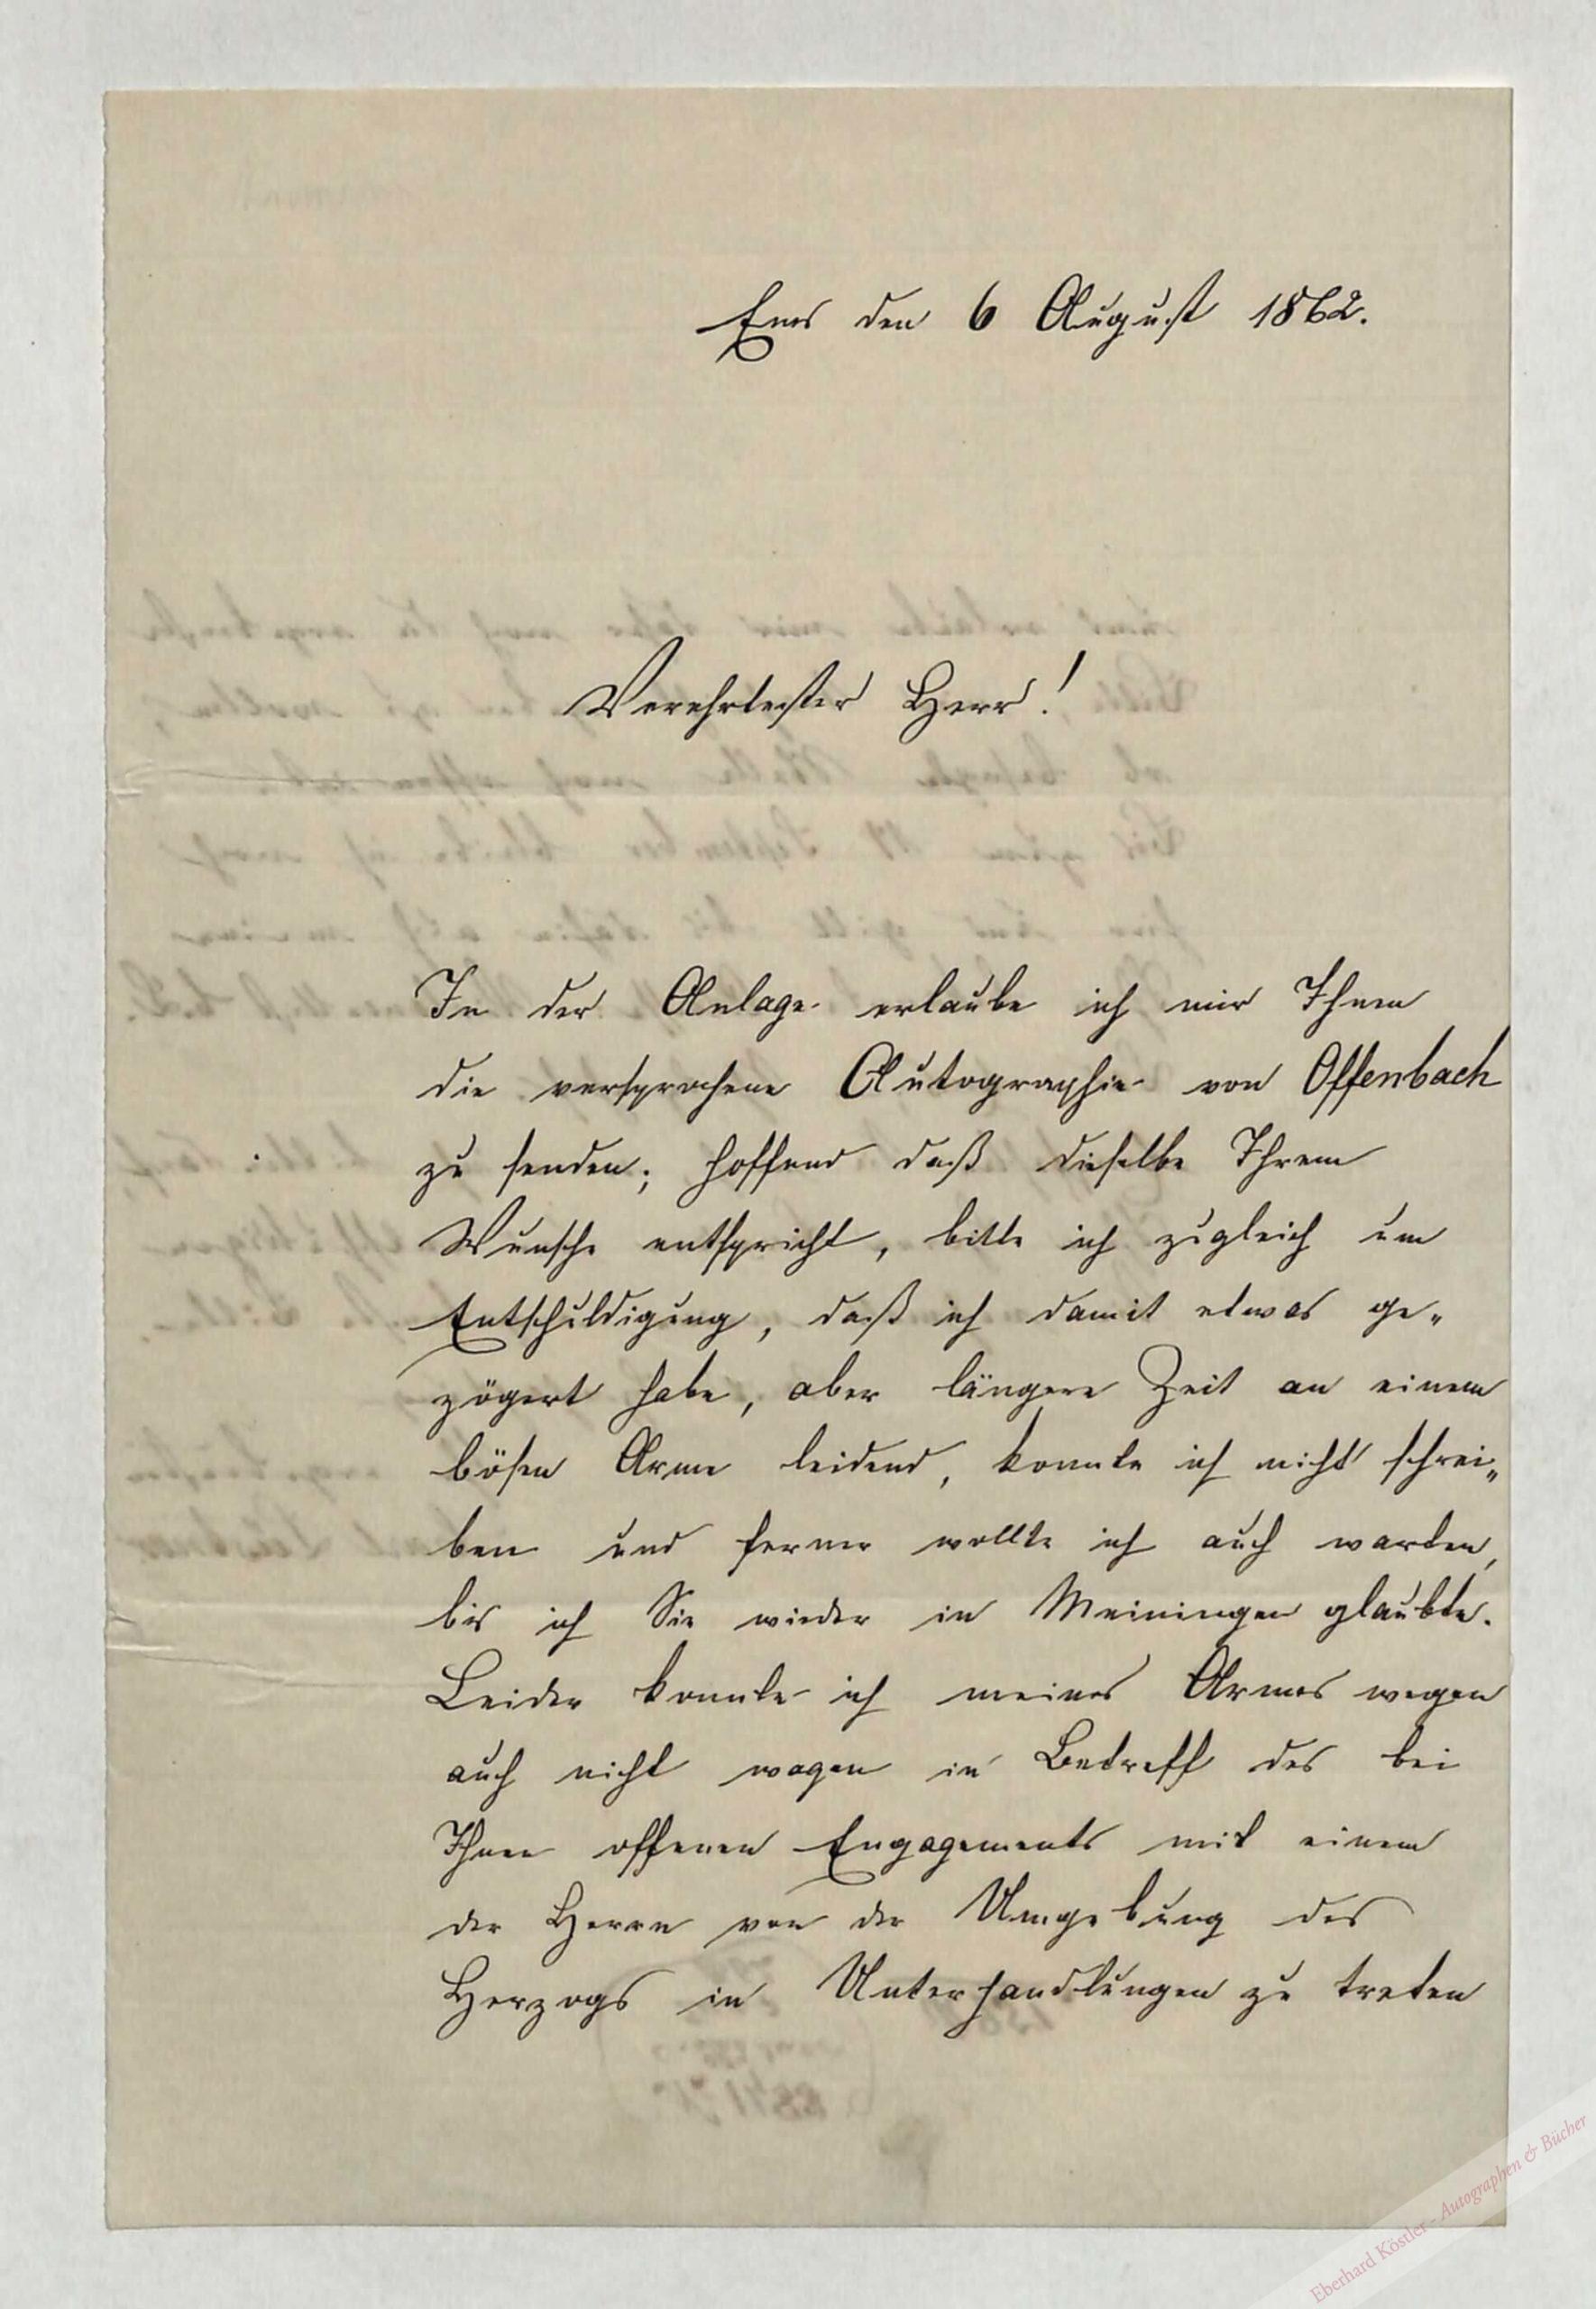 Ems den 6 August 1862.
Verehrtester Herr!
In der Anlage erlaube ich mir Ihnen
die versprochene Autographie von Offenbach
zu senden; hoffend daß dieselbe Ihrem
Wunsche entspricht, bitte ich zugleich um
Entschuldigung, daß ich damit etwas ge-
zögert habe, aber längere Zeit an einem
bösen Arme leidend, konnte ich nicht schrei-
ben und ferner wollte ich auch warten,
bis ich Sie wieder in Meiningen glaubte.
Leider konnte ich meines Armes wegen
auch nicht wagen in Betreff des bei
Ihnen offenen Engagements mit einem
der Herrn von der Umgebung des
Herzogs in Unterhandlungen zu treten
Eberhard Köstler - Autographen & Bücher